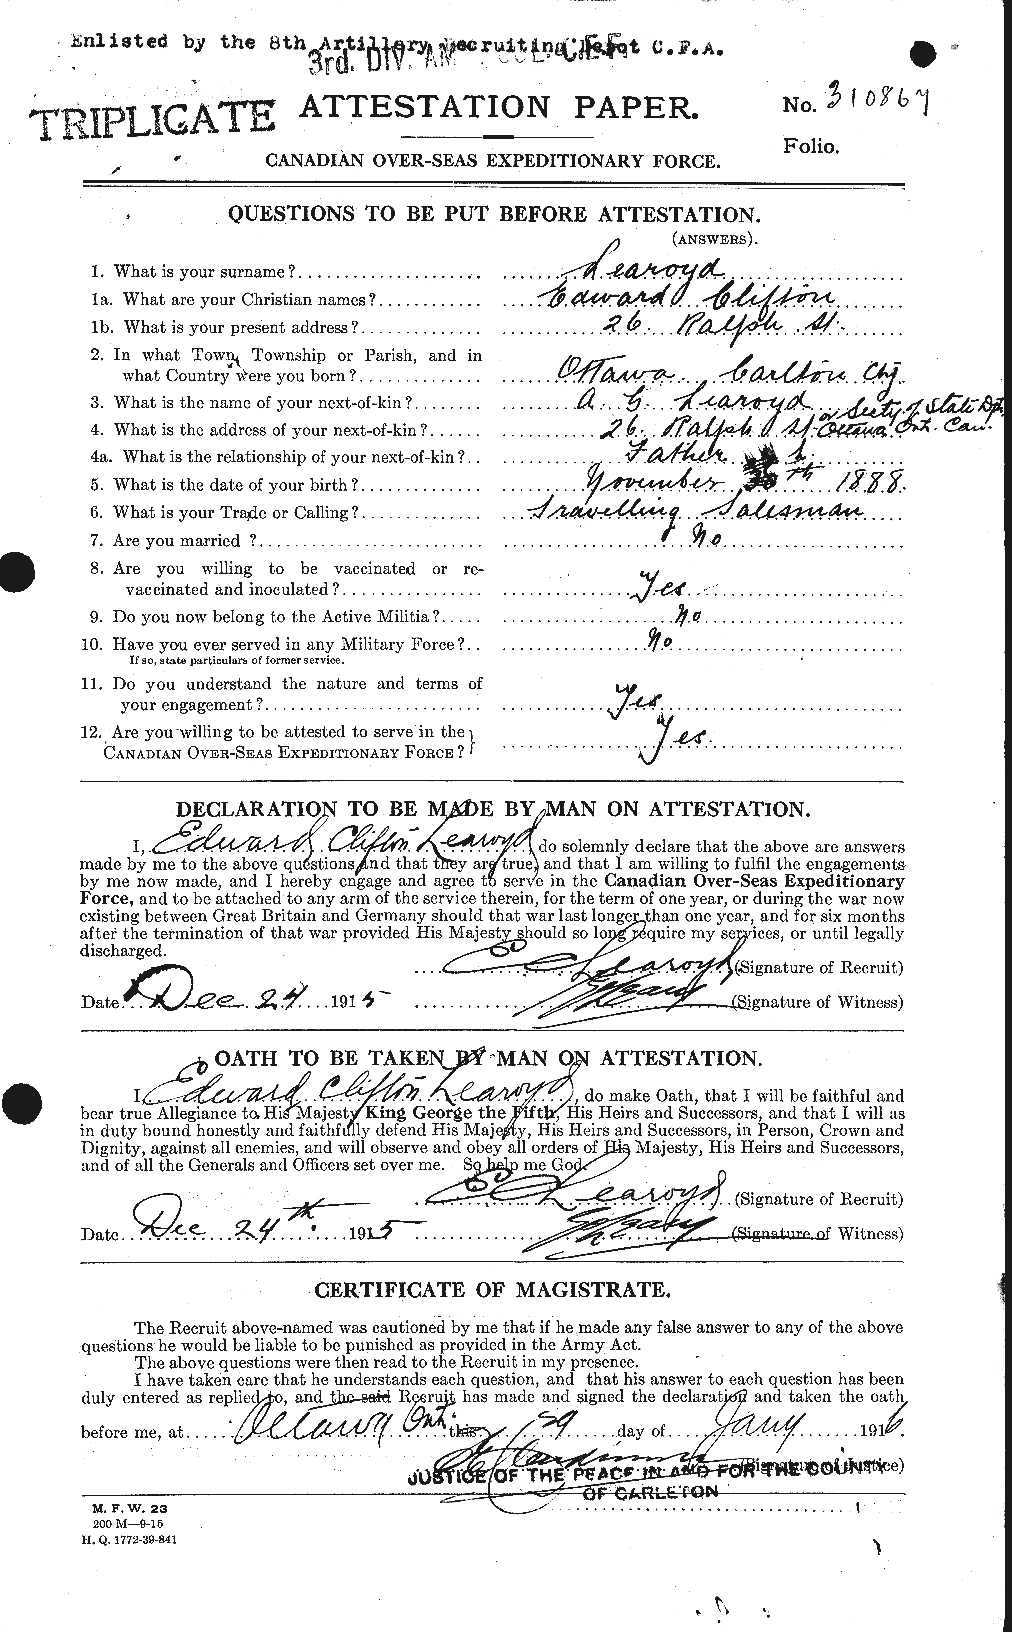 Enlisted by the 8th Artillery Recruiting Depot C.F.A.
3rd. DIV. AM COL. C.E.F.
TRIPLICATE
ATTESTATION PAPER.
No. 310867
Folio.
CANADIAN OVER-SEAS EXPEDITIONARY FORCE.
QUESTIONS TO BE PUT BEFORE ATTESTATION.
(ANSWERS).
1. What is your surname? Learoyd
1a. What are your Christian names? Edward Clifton
1b. What is your present address? 26 Ralph St.
2. In what Town, Township or Parish, and in
what Country were you born? Ottawa Carlton Cty.
3. What is the name of your next-of-kin? A G Learoyd
or Secty of State Dpt.
4. What is the address of your next-of-kin? 26 Ralph St. Ottawa Ont. Can.
4a. What is the relationship of your next-of-kin? Father
5. What is the date of your birth? November th 1888.
6. What is your Trade or Calling? Travelling Salesman
7. Are you married? No
8. Are you willing to be vaccinated or re-
vaccinated and inoculated? Yes
9. Do you now belong to the Active Militia? No
10. Have you ever served in any Military Force? No
If so, state particulars of former service.
11. Do you understand the nature and terms of
your engagement? Yes
12. Are you willing to be attested to serve in the
CANADIAN OVER-SEAS EXPEDITIONARY FORCE? Yes
DECLARATION TO BE MADE BY MAN ON ATTESTATION.
I, Edward Clifton Learoyd, do solemnly declare that the above are answers
made by me to the above questions and that they are true, and that I am willing to fulfil the engagements
by me now made, and I hereby engage and agree to serve in the Canadian Over-Seas Expeditionary
Force, and to be attached to any arm of the service therein, for the term of one year, or during the war now
existing between Great Britain and Germany should that war last longer than one year, and for six months
after the termination of that war provided His Majesty should so long require my services, or until legally
discharged.
E C Learoyd (Signature of Recruit)
Date Dec 24 1915 (Signature of Witness)
OATH TO BE TAKEN BY MAN ON ATTESTATION.
I, Edward Clifton Learoyd, do make Oath, that I will be faithful and
bear true Allegiance to His Majesty King George the Fifth, His Heirs and Successors, and that I will as
in duty bound honestly and faithfully defend His Majesty, His Heirs and Successors, in Person, Crown and
Dignity, against all enemies, and will observe and obey all orders of His Majesty, His Heirs and Successors,
and of all the Generals and Officers set over me. So help me God.
E C Learoyd (Signature of Recruit)
Date Dec 24th 1915 (Signature of Witness)
CERTIFICATE OF MAGISTRATE.
The Recruit above-named was cautioned by me that if he made any false answer to any of the above
questions he would be liable to be punished as provided in the Army Act.
The above questions were then read to the Recruit in my presence.
I have taken care that he understands each question, and that his answer to each question has been
duly entered as replied to, and the said Recruit has made and signed the declaration and taken the oath
before me, at Ottawa Ont. this 29 day of Jany 1916.
(Signature of Justice)
JUSTICE OF THE PEACE IN AND FOR THE COUNTY
OF CARLETON
M. F. W. 23
200 M—9-15
H. Q. 1772-39-841